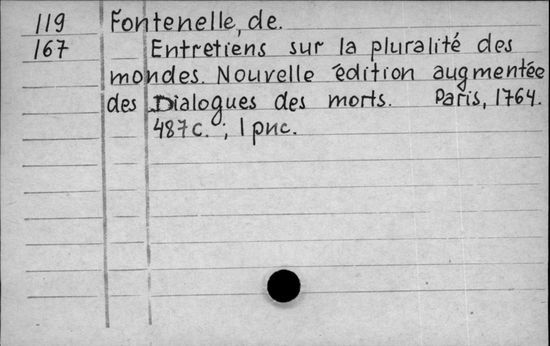 119 Fontenelle, de.
167 Entretiens sur la pluralité des
mondes. Nouvelle édition augmentée
des Dialogues des morts. Paris, 1764.
487с. ; 1 рис.